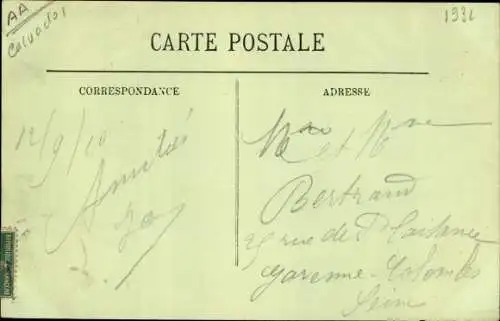 AA
Calvados
CARTE POSTALE
CORRESPONDANCE
ADRESSE
12/9/10
Amitiés
Mr et Mme
Bertrand
rue de
Garenne-Colombes
Seine